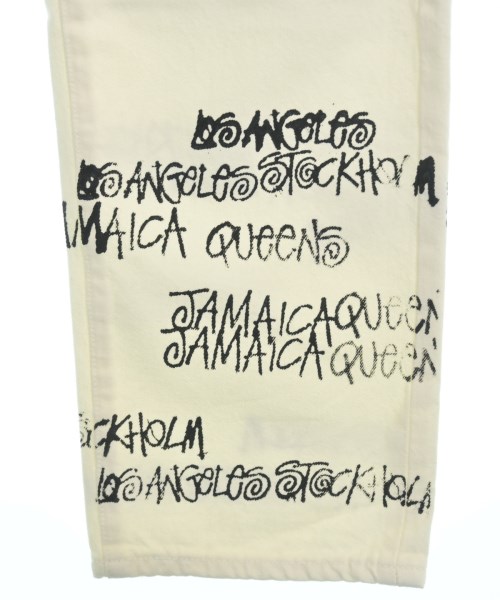 LOS ANGELES
LOS ANGELES STOCKHOLM
AMAICA QUEENS
JAMAICA QUEEN
JAMAICA QUEEN
OCKHOLM
LOS ANGELES STOCKHOLM